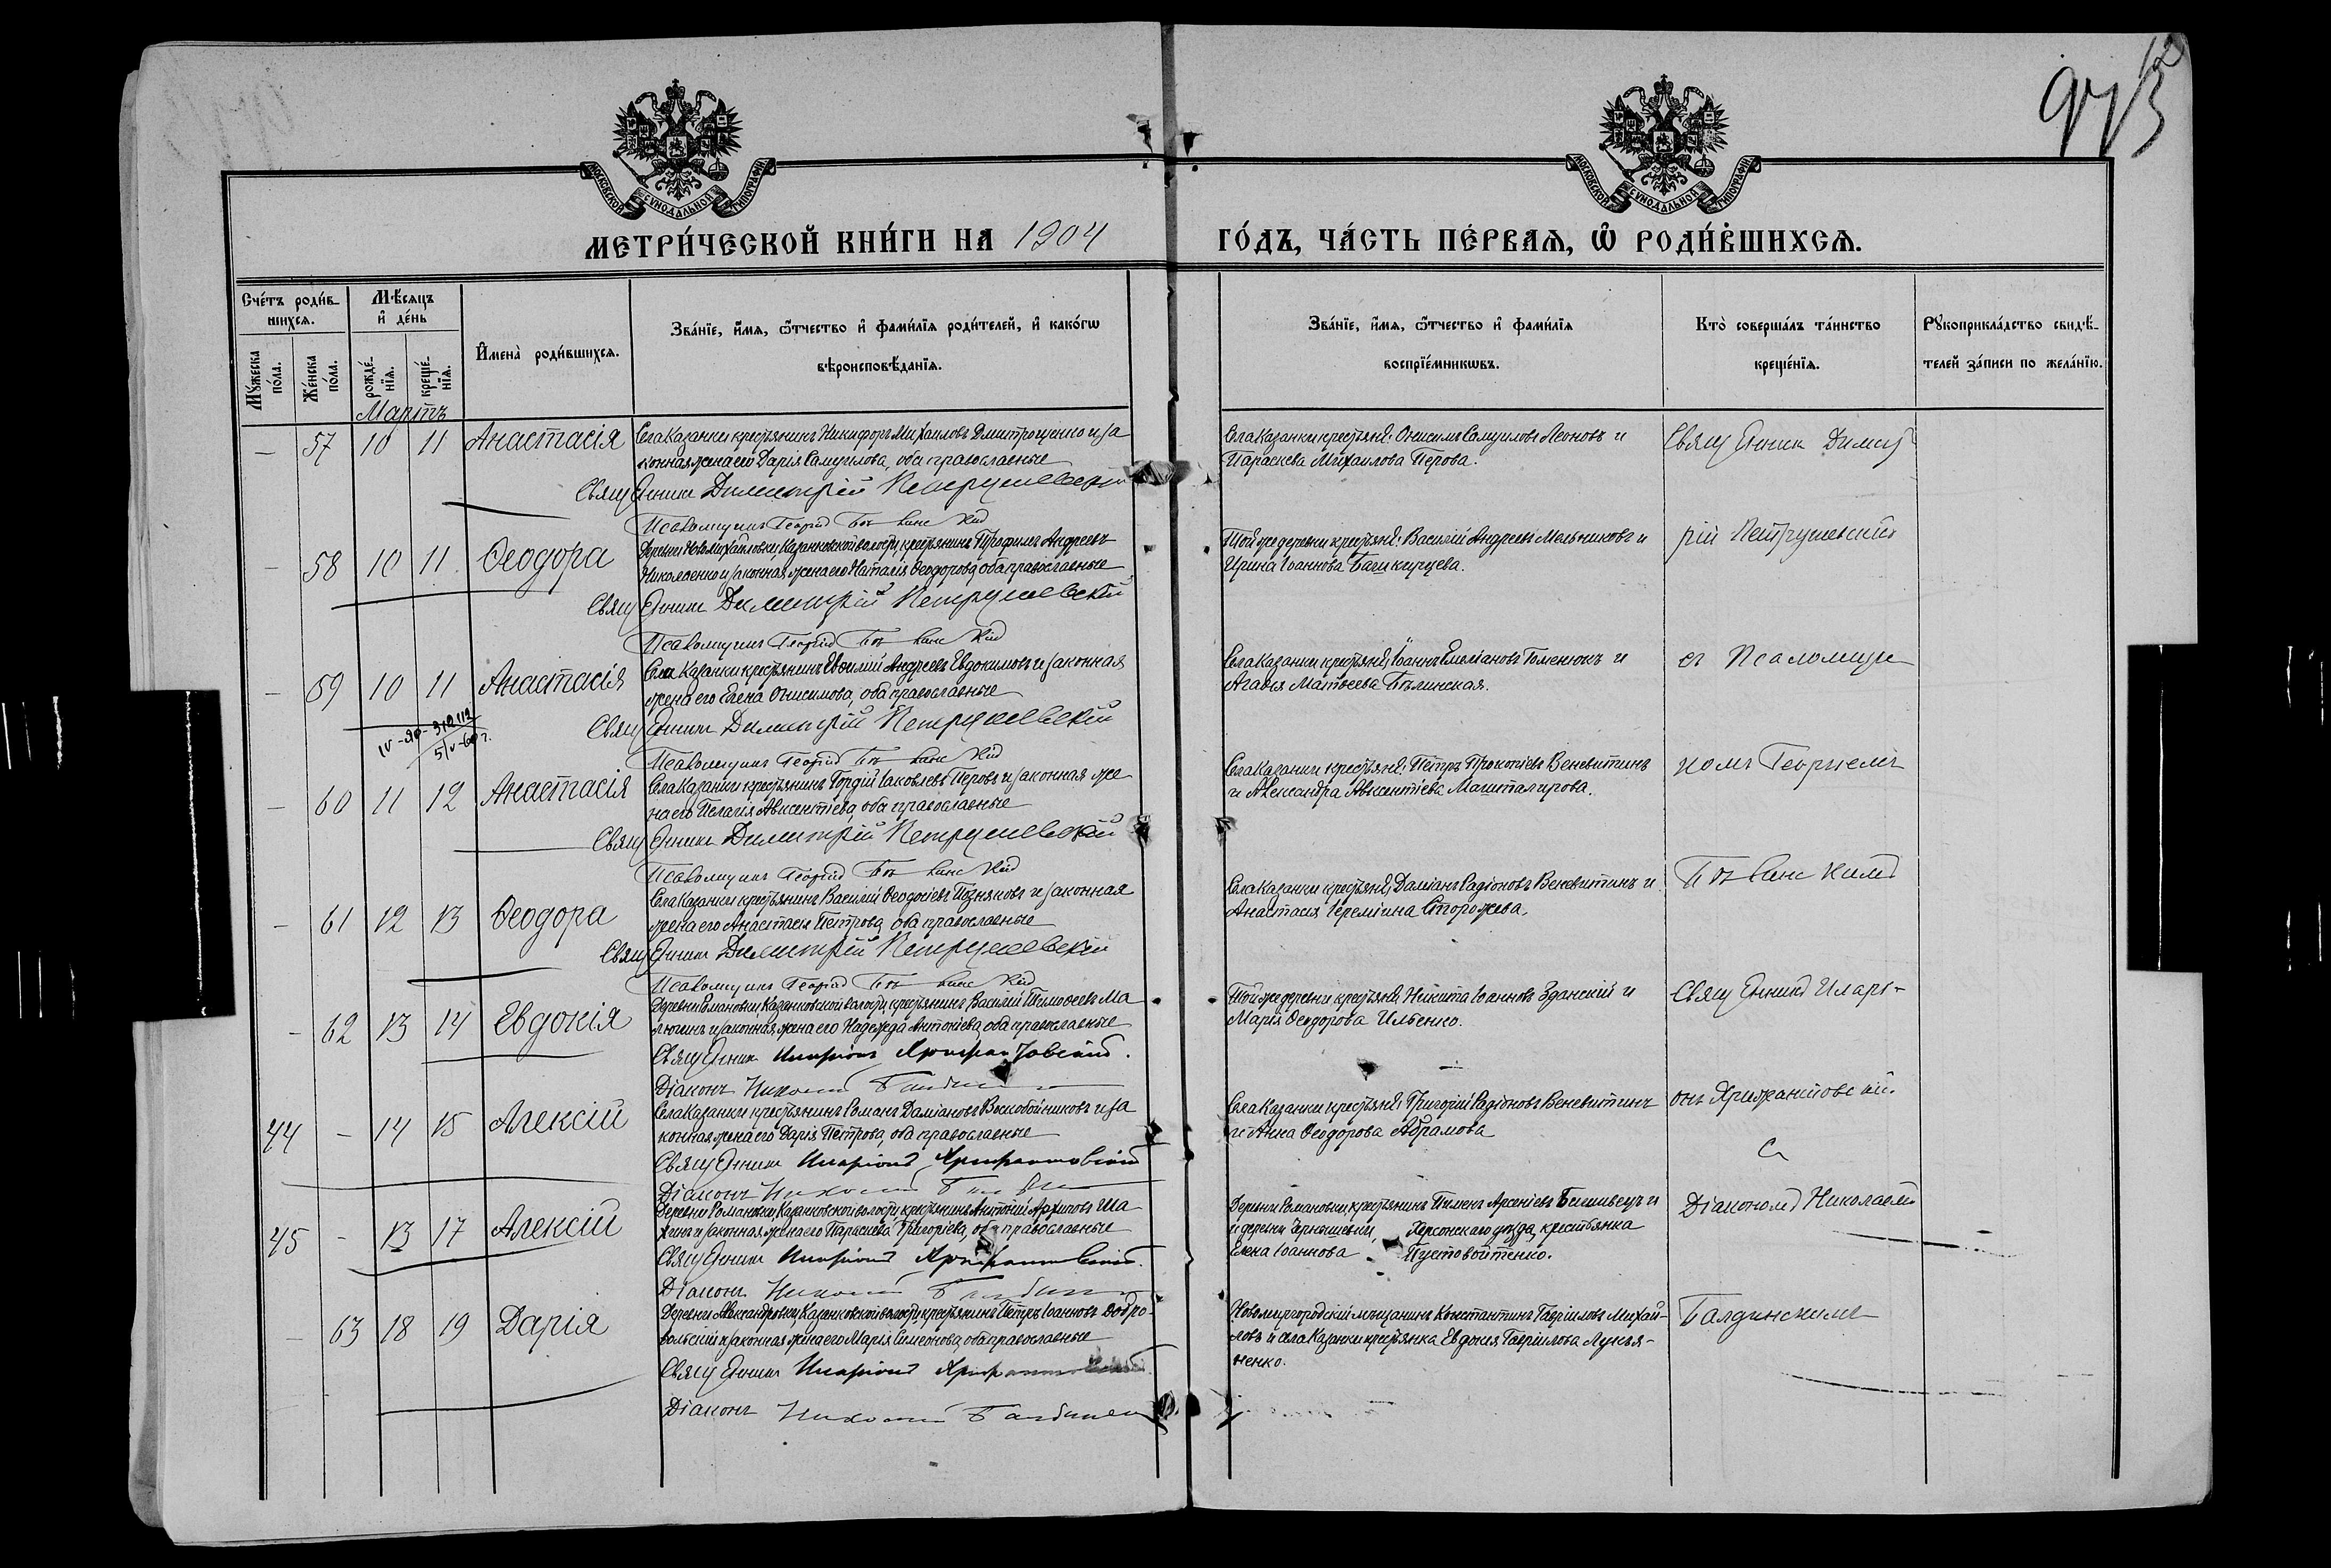 973
12
МОСКОВСКОЙ СУНОДАЛЬНОЙ ТИПОГРАФІИ
МОСКОВСКОЙ СУНОДАЛЬНОЙ ТИПОГРАФІИ
МЕТРИ́ЧЕСКОЙ КНИ́ГИ НА 1904 ГО́ДЪ, ЧА́СТЬ ПЕ́РВАѦ, Ѡ РОДИ́ВШИХСѦ.
Сче́тъ роди́в-
шихсѧ.
Мѣ́сѧцъ
и҆ де́нь
Мꙋ́жеска по́ла.
Же́нска по́ла.
рожде́-
нїѧ.
креще́-
нїѧ.
И҆мена̀ роди́вшихсѧ.
Зва́нїе, и҆́мѧ, ѻ҆́тчество и҆ фами́лїѧ роди́телей, и҆ како́гѡ
вѣроисповѣ́данїѧ.
Зва́нїе, и҆́мѧ, ѻ҆́тчество и҆ фами́лїѧ
воспрїе́мникѡвъ.
Кто̀ соверша́лъ та́инство
креще́нїѧ.
Рꙋкоприкла́дство свидѣ́-
телей за́писи по жела́нїю.
Мартъ
– 57 10 11 Анастасія
Села Казанки крестьянинъ Никифоръ Михаиловъ Дмитроценко и за
конная жена его Дарія Самуилова, оба православные
Священникъ Димитрій Петрушевскій
Псаломщикъ Георгій
Села Казанки крестьяне: Онисимъ Самуиловъ Леоновъ и
Параскева Михаилова Перова.
Священник Димит
– 58 10 11 Ѳеодора
Деревни Новомихайловки, Казанковской волости, крестьянинъ Трофимъ Андреевъ
Николаенко и законная жена его Наталія Ѳеодорова, оба православные
Священникъ Димитрій Петрушевскій
Псаломщикъ Георгій
Той же деревни крестьяне: Василій Андреевъ Мельниковъ и
Ирина Іоаннова Башкирцева.
рій Петрушевскій
– 59 10 11 Анастасія
Села Казанки крестьянинъ Евѳимій Андреевъ Евдокимовъ и законная
жена его Елена Онисимова, оба православные
Священникъ Димитрій Петрушевскій
Псаломщикъ Георгій
Села Казанки крестьяне: Іоаннъ Емеліановъ Гоменюкъ и
Агаѳія Матѳеева Бѣлинская.
съ Псаломщи
5/V-60 г.
– 60 11 12 Анастасія
Села Казанки крестьянинъ Гордій Іаковлевъ Перовъ и законная же
на его Пелагія Авксентіева, оба православные
Священникъ Димитрій Петрушевскій
Псаломщикъ Георгій
Села Казанки крестьяне: Петръ Прокопіевъ Веневитинъ
и Александра Авксентіева Машталирова.
комъ Георгіемъ
– 61 12 13 Ѳеодора
Села Казанки крестьянинъ Василій Ѳеодосіевъ Позняковъ и законная
жена его Анастасія Петрова, оба православные
Священникъ Димитрій Петрушевскій
Псаломщикъ Георгій
Села Казанки крестьяне: Даміанъ Радіоновъ Веневитинъ и
Анастасія Іереміина Сторожева.
– 62 13 14 Евдокія
Деревни Романовки, Казанковской волости, крестьянинъ Василій Тимоѳеевъ Ма
люгинъ и законная жена его Надежда Антоніева, оба православные
Священник Иларіонъ Хрисранѳовскій.
Діаконъ Николай
Той же деревни крестьяне: Никита Іоанновъ Зданскій и
Марія Ѳеодорова Ильенко.
Священник Илари-
44 – 14 15 Алексій
Села Казанки крестьянинъ Романъ Даміановъ Воскобойниковъ и за
конная жена его Дарія Петрова, оба православные
Священник Иларіонъ
Діаконъ Николай
Села Казанки крестьяне: Григорій Радіоновъ Веневитинъ
и Анна Ѳеодорова Абрамова
онъ
с
45 – 13 17 Алексій
Деревни Романовки, Казанковской волости, крестьянинъ Антоній Архиповъ Ша
хинъ и законная жена его Параскева Григоріева, оба православные
Священник Иларіонъ
Діаконъ Николай
Деревни Романовки крестьянинъ Пименъ Арсеніевъ и
и деревни Чернышевки, Херсонскаго уѣзда, крестьянка
Елена Іоаннова Пустовойтенко.
Діакономъ Николаемъ
– 63 18 19 Дарія
Деревни Александровки, Казанковской волости, крестьянинъ Петръ Іоанновъ Добро-
вольскій и законная жена его Марія Симеонова, оба православные
Священник Иларіонъ
Діаконъ Николай
Новомиргородскій мѣщанинъ Константинъ Гавріиловъ Михай-
ловъ и села Казанки крестьянка Евдокія Гавріилова Лукья-
ненко.
Балдинскимъ